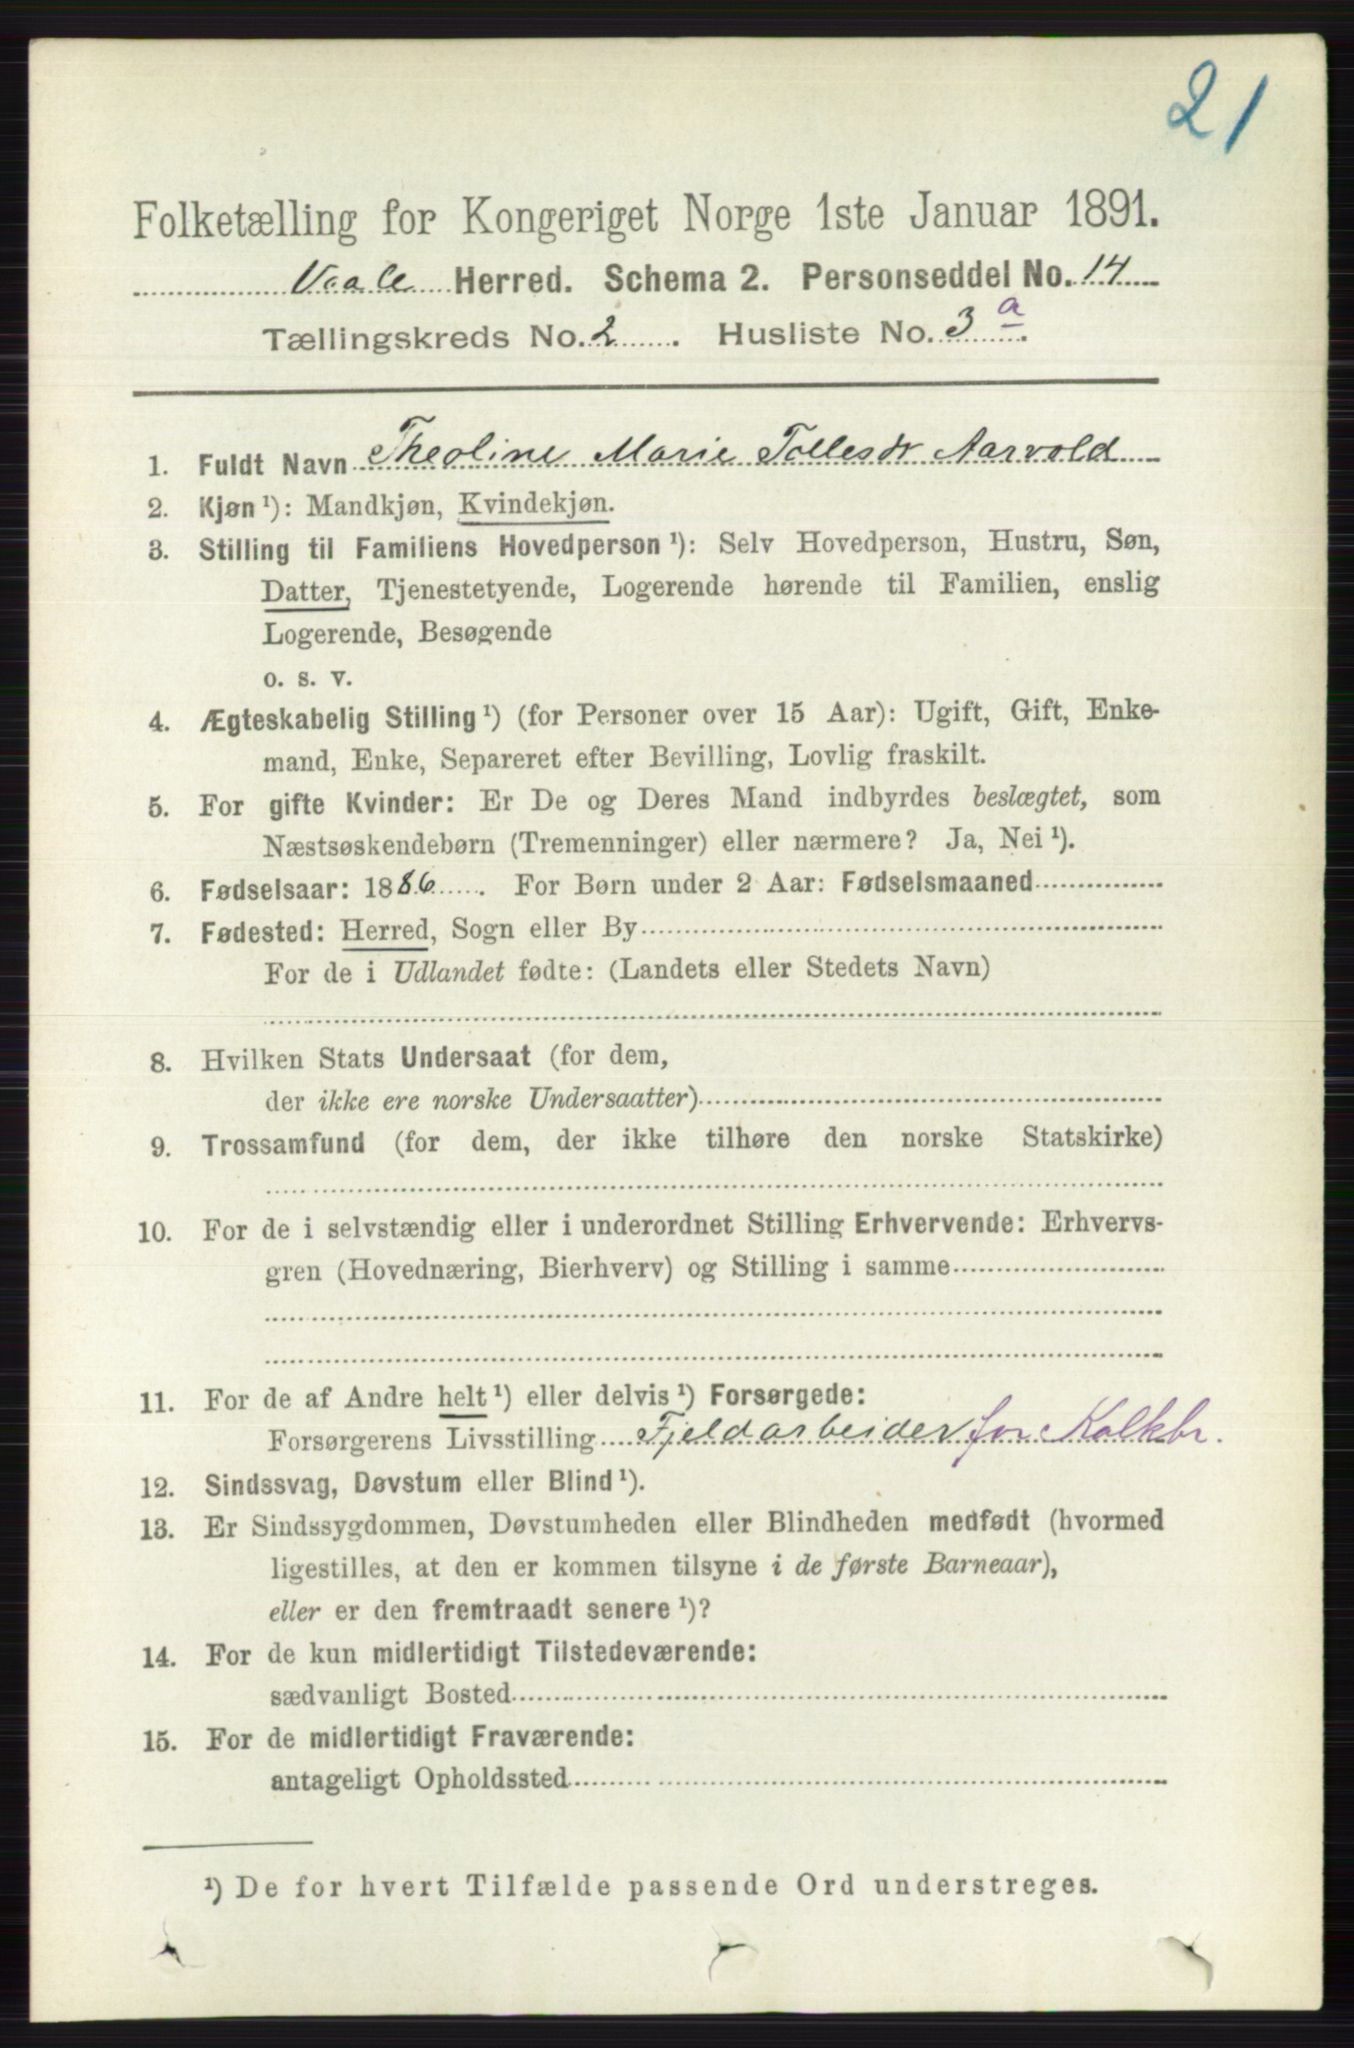 21
Folketælling for Kongeriget Norge 1ste Januar 1891.
Vaale Herred. Schema 2. Personseddel No. 14
Tællingskreds No. 2. Husliste No. 3 a.
1. Fuldt Navn Theoline Marie Tollesdr Aarvold
2. Kjøn ¹): Mandkjøn, Kvindekjøn.
3. Stilling til Familiens Hovedperson ¹): Selv Hovedperson, Hustru, Søn,
Datter, Tjenestetyende, Logerende hørende til Familien, enslig
Logerende, Besøgende
o. s. v.
4. Ægteskabelig Stilling ¹) (for Personer over 15 Aar): Ugift, Gift, Enke-
mand, Enke, Separeret efter Bevilling, Lovlig fraskilt.
5. For gifte Kvinder: Er De og Deres Mand indbyrdes beslægtet, som
Næstsøskendebørn (Tremenninger) eller nærmere? Ja, Nei ¹).
6. Fødselsaar: 1886. For Børn under 2 Aar: Fødselsmaaned
7. Fødested: Herred, Sogn eller By
For de i Udlandet fødte: (Landets eller Stedets Navn)
8. Hvilken Stats Undersaat (for dem,
der ikke ere norske Undersaatter)
9. Trossamfund (for dem, der ikke tilhøre den norske Statskirke)
10. For de i selvstændig eller i underordnet Stilling Erhvervende: Erhvervs-
gren (Hovednæring, Bierhverv) og Stilling i samme
11. For de af Andre helt ¹) eller delvis ¹) Forsørgede:
Forsørgerens Livsstilling Fjeldarbeider for Kalkbr.
12. Sindssvag, Døvstum eller Blind ¹).
13. Er Sindssygdommen, Døvstumheden eller Blindheden medfødt (hvormed
ligestilles, at den er kommen tilsyne i de første Barneaar),
eller er den fremtraadt senere ¹)?
14. For de kun midlertidigt Tilstedeværende:
sædvanligt Bosted
15. For de midlertidigt Fraværende:
antageligt Opholdssted
¹) De for hvert Tilfælde passende Ord understreges.